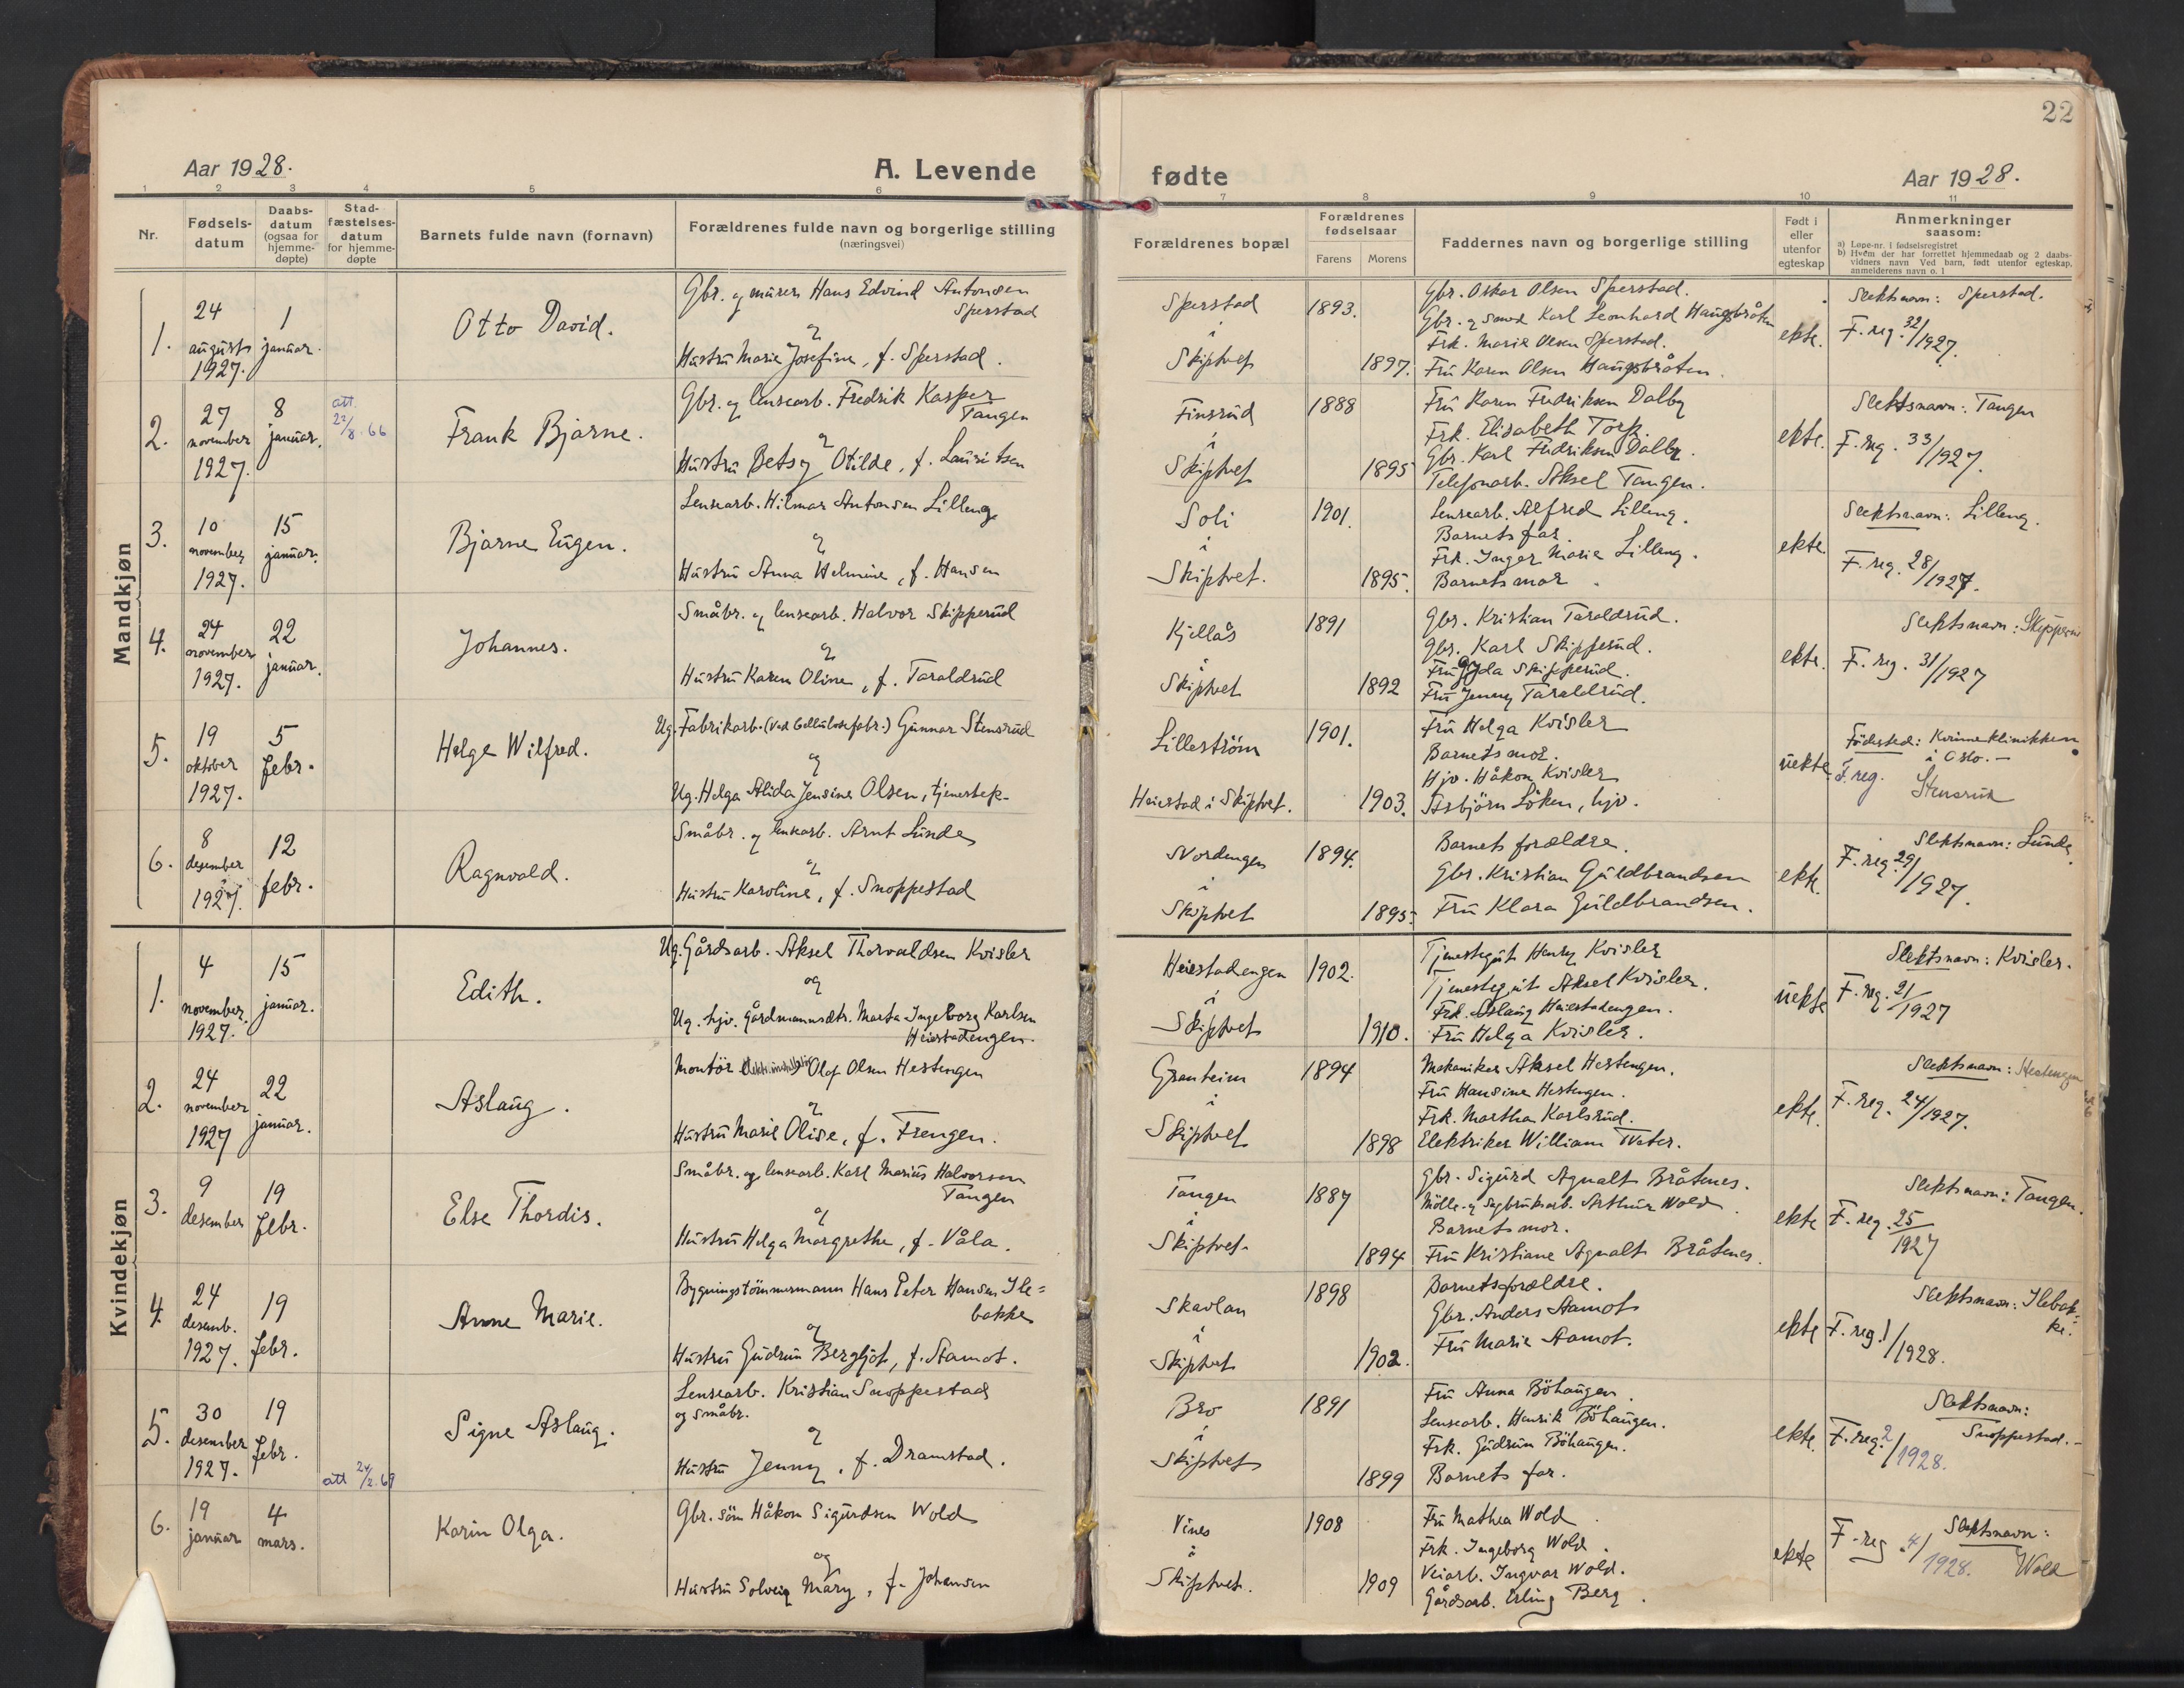 22
Aar 1928.
A. Levende
fødte
Aar 1928.
1 2 3 4 5 6 7 8 9 10 11
Nr.
Fødsels-
datum
Daabs-
datum
(ogsaa for
hjemme-
døpte)
Stad-
fæstelses-
datum
for hjemme-
døpte
Barnets fulde navn (fornavn)
Forældrenes fulde navn og borgerlige stilling
(næringsvei)
Forældrenes bopæl
Forældrenes
fødselsaar
Farens Morens
Faddernes navn og borgerlige stilling
Født i
eller
utenfor
egteskap
Anmerkninger
saasom:
a) Løpe-nr. i fødselsregistret
b) Hvem der har forrettet hjemmedaab og 2 daabs-
vidners navn Ved barn, født utenfor egteskap,
anmelderens navn o. l
Mandkjøn
1.
24
august
1927.
1
januar.
Otto David.
Gbr. og murer Hans Edvind Antonsen
Sperstad
og
Hustru Marie Josefine, f. Sperstad.
Sperstad
i
Skiptvet
1893.
1897.
Gbr. Oskar Olsen Sperstad.
Gbr. og smed Karl Leonhard Haugsbråten
Frk. Marie Olsen Sperstad.
Fru Karen Olsen Haugsbråten.
ekte.
Slektsnavn: Sperstad.
F. reg. 32/1927.
2.
27
november
1927.
8
januar.
att.
22/8.66
Frank Bjarne.
Gbr. og lensearb. Fredrik Kasper
Tangen
og
Hustru Betsy Otilde, f. Lauritsen
Finsrud
i
Skiptvet
1888
1895
Fru Karen Fredriksen Dalby
Frk. Elisabeth Torp.
Gbr. Karl Fredriksen Dalby.
Telefonarb. Aksel Tangen.
ekte.
Slektsnavn: Tangen
F. reg. 33/1927.
3.
10
november
1927.
15
januar.
Bjarne Eugen.
Lensearb. Hilmar Antonsen Lilleng
og
Hustru Anna Helmine, f. Hansen
Soli
i
Skiptvet.
1901.
1895.
Lensearb. Alfred Lilleng.
Barnets far.
Frk. Inger Marie Lilleng.
Barnets mor.
ekte.
Slektsnavn: Lilleng.
F. reg. 28/1927.
4.
24
november
1927.
22
januar.
Johannes.
Småbr. og lensearb. Halvor Skipperud
og
Hustru Karen Oline, f. Taraldrud
Kjellås
i
Skiptvet
1891
1892
Gbr. Kristian Taraldrud.
Gbr. Karl Skipperud.
Fru Gyda Skipperud.
Fru Jenny Taraldrud.
ekte.
Slektsnavn: Skipperud
F. reg. 31/1927
5.
19
oktober
1927.
5
febr.
Helge Wilfred.
Ug. Fabrikarb. (ved Cellulosefabr.) Gunnar Stensrud
og
Ug. Helga Alida Jensine Olsen, tjenestep.
Lillestrøm
Heiestad i Skiptvet.
1901.
1903.
Fru Helga Kvisler
Barnets mor.
Hjv. Håkon Kvisler
Asbjörn Löken, hjv.
uekte.
Födested: Kvinneklinikken
i Oslo.
F. reg.
Stensrud
6.
8
desember
1927.
12
febr.
Ragnvald.
Småbr. og lensearb. Arnt Lunde
og
Hustru Karoline, f. Snoppestad
Nordengen
i
Skiptvet
1894.
1895.
Barnets forældre.
Gbr. Kristian Guldbrandsen
Fru Klara Guldbrandsen.
ekte.
Slektsnavn: Lunde
F. reg. 29/1927.
Kvindekjøn
1.
4
november.
1927.
15
januar.
Edith.
Ug. Gårdsarb. Aksel Thorvaldsen Kvisler
og
Ug. hjv. gårdmannsdtr. Marta Ingeborg Karlsen
Heiestadengen.
Heiestadengen
i
Skiptvet
1902.
1910.
Tjenestegut Henry Kvisler
Tjenestegut Aksel Kvisler.
Frk. Aslaug Heiestadengen.
Fru Helga Kvisler.
uekte
Slektsnavn: Kvisler.
F. reg. 21/1927
2.
24
november
1927
22
januar.
Aslaug.
Montör Olaf Olsen Hestengen
og
Hustru Marie Olise, f. Frengen.
Granheim
i
Skiptvet
1894
1898
Mekaniker Aksel Hestengen.
Fru Hansine Hestengen.
Frk. Martha Karlsrud.
Elektriker William Tveter.
ekte.
Slektsnavn: Hestengen
F. reg. 24/1927.
3.
9
desember
19
febr.
Else Thordis.
Småbr. og lensearb. Karl Marius Halvorsen
Tangen
og
Hustru Helga Margrethe, f. Våla.
Tangen
i
Skiptvet
1887
1894
Gbr. Sigurd Agnalt Bråtenes.
Mölle- og Sagbruksarb. Arthur Wold.
Barnets mor.
Fru Kristiane Agnalt Bråtenes.
ekte
Slektsnavn: Tangen.
F. reg. 25/1927
4.
24
desemb.
1927.
19
febr.
Anne Marie.
Bygningstömmermann Hans Peter Hansen Ile=
bakke
og
Hustru Gudrun Bergljot, f. Aamot.
Skavlan
i
Skiptvet
1898
1902.
Barnets forældre.
Gbr. Anders Aamot
Fru Marie Aamot.
ekte
Slektsnavn: Ilebak-
ke.
F. reg. 1/1928.
5.
30
desember
1927.
19
febr.
att 24/2.69
Signe Aslaug.
Lensearb. Kristian Snoppestad
og småbr.
og
Hustru Jenny, f. Dramstad.
Bro
i
Skiptvet
1891
1899
Fru Anna Böhaugen.
Lensearb. Henrik Böhaugen.
Frk. Gudrun Böhaugen.
Barnets far.
ekte.
Slektsnavn:
Snoppestad.
F. reg. 2/1928.
6.
19
januar
4
mars.
Karin Olga.
Gbr. sön Håkon Sigurdsen Wold
og
Hustru Solveig Mary, f. Johansen
Vines
i
Skiptvet.
1908
1909
Fru Mathea Wold
Frk. Ingeborg Wold.
Veiarb. Ingvar Wold.
Gårdsarb. Erling Berg.
ekte
Slektsnavn:
Wold
F. reg. 4/1928.